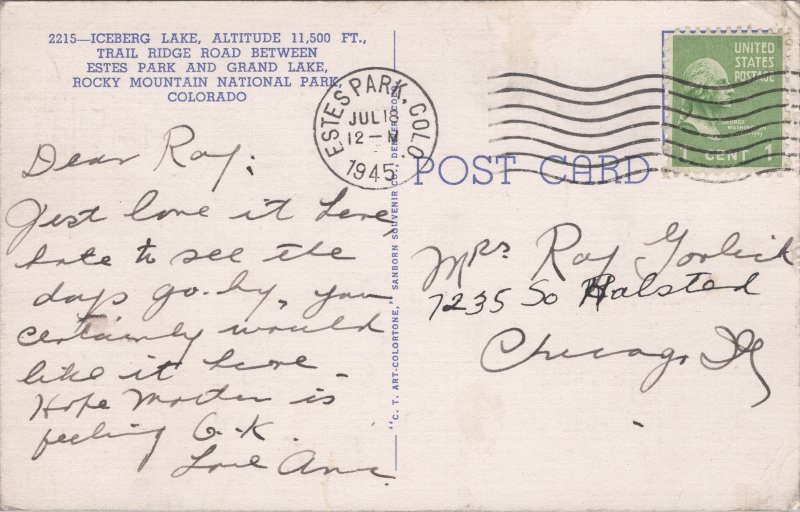 2215—ICEBERG LAKE, ALTITUDE 11,500 FT.,
TRAIL RIDGE ROAD BETWEEN
ESTES PARK AND GRAND LAKE,
ROCKY MOUNTAIN NATIONAL PARK,
COLORADO
Dear Ray:
Just love it here,
hate to see the
days go by, you
certainly would
like it here.
Hope Mother is
feeling O.K.
Love Ann
"C. T. ART-COLORTONE," SANBORN SOUVENIR CO., DENVER, COLO.
ESTES PARK, COLO.
JUL 18
12—M
1945
UNITED
STATES
POSTAGE
GEORGE WASHINGTON
1 CENT 1
POST CARD
Mrs Ray
7235 So Halsted
Chicago Ill